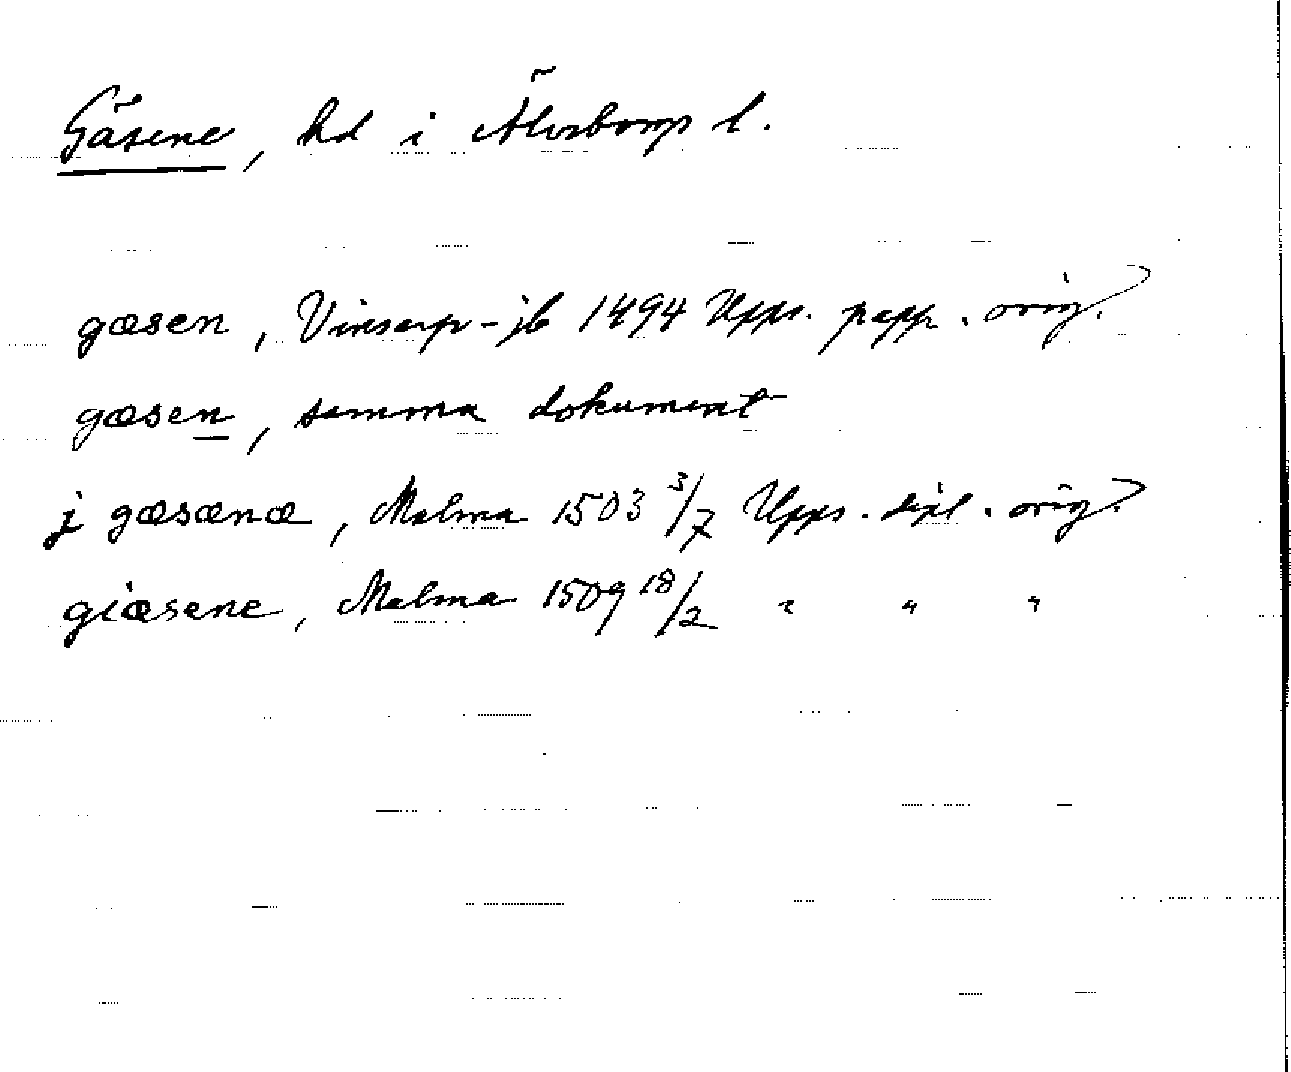 Gäsene, hd i Älvsborgs l.
gæsen, Vinsarp-jb 1494 Upps. papp. orig.
gæsen, samma dokument
j gæsænæ, Malma 1503 3/7 Upps. dipl. orig.
giæsene, Malma 1509 18/2 " " "